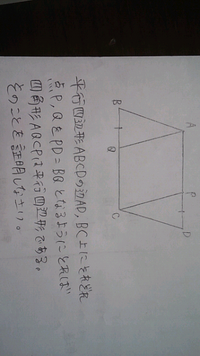 A P D
B Q C
平行四辺形ABCDの辺AD, BC上にそれぞれ
点P, QをPD=BQとなるようにとれば
四角形AQCPは平行四辺形である。
そのことを証明しなさい。